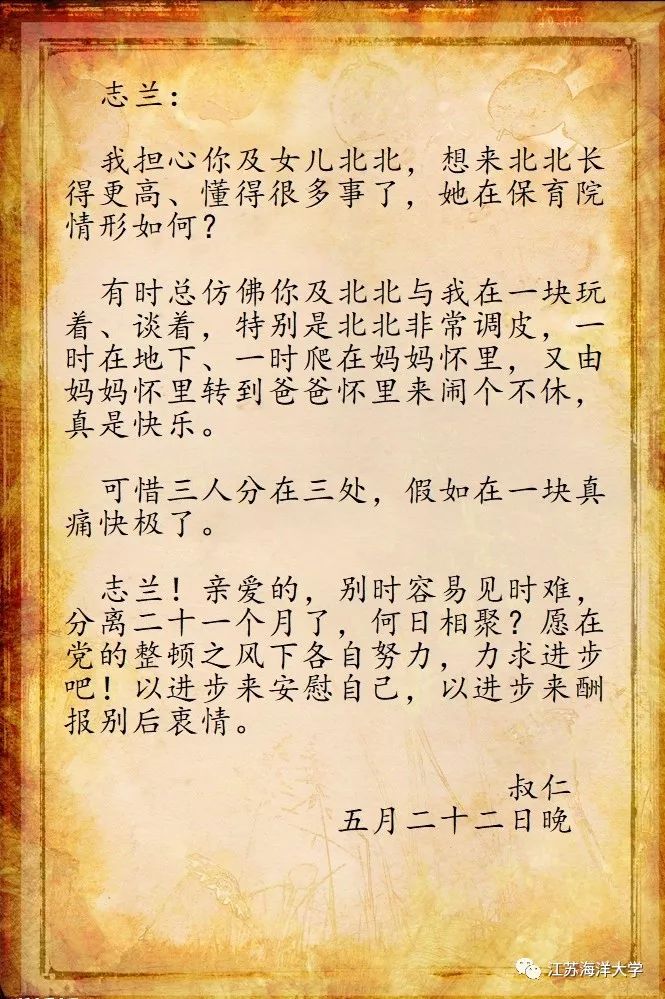 志兰：
我担心你及女儿北北，想来北北长
得更高、懂得很多事了，她在保育院
情形如何？
有时总仿佛你及北北与我在一块玩
着、谈着，特别是北北非常调皮，一
时在地下、一时爬在妈妈怀里，又由
妈妈怀里转到爸爸怀里来闹个不休，
真是快乐。
可惜三人分在三处，假如在一块真
痛快极了。
志兰！亲爱的，别时容易见时难，
分离二十一个月了，何日相聚？愿在
党的整顿之风下各自努力，力求进步
吧！以进步来安慰自己，以进步来酬
报别后衷情。
叔仁
五月二十二日晚
江苏海洋大学